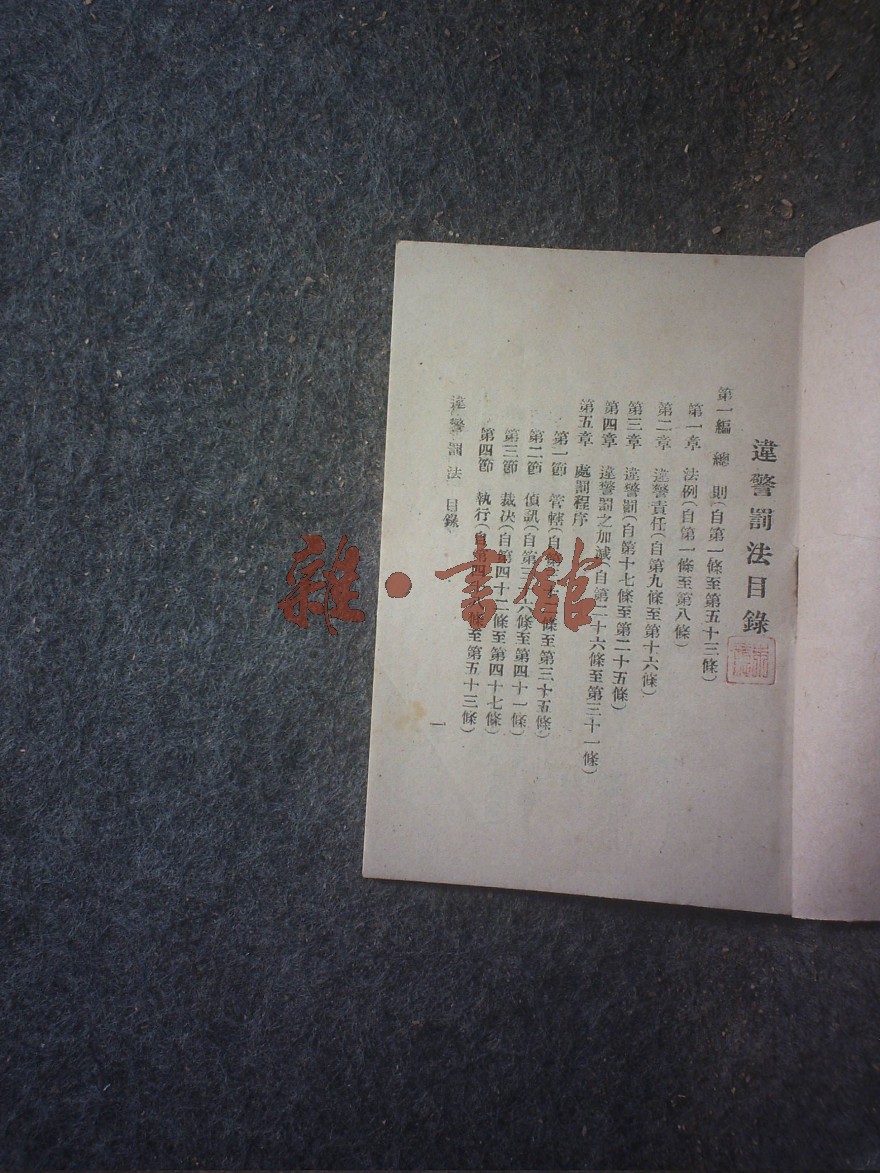 違警罰法目錄
第一編 總則(自第一條至第五十三條)
第一章 法例(自第一條至第八條)
第二章 違警責任(自第九條至第十六條)
第三章 違警罰(自第十七條至第二十五條)
第四章 違警罰之加減(自第二十六條至第三十一條)
第五章 處罰程序
第一節 管轄(自第 條至第三十五條)
第二節 偵訊(自第三十六條至第四十一條)
第三節 裁決(自第四十二條至第四十七條)
第四節 執行(自第四 條至第五十三條)
違警罰法 目錄
一
雜·書館